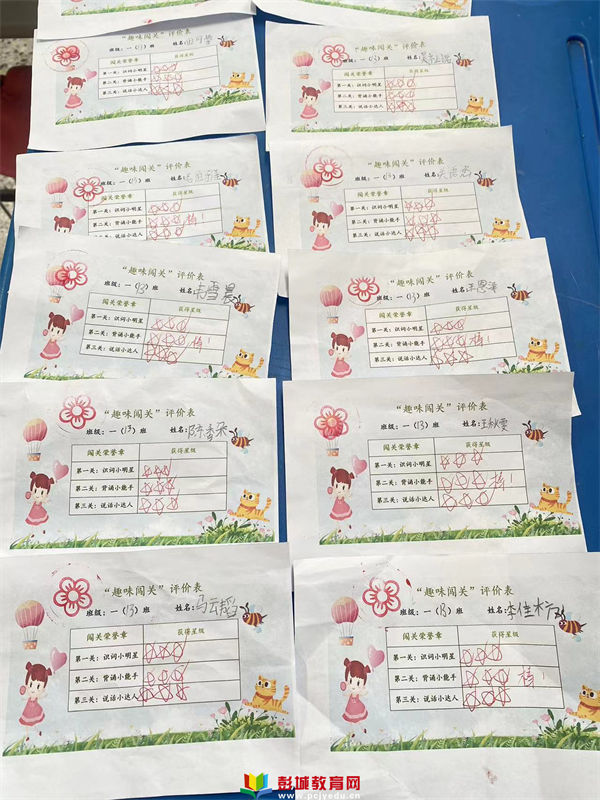 “趣味闯关”评价表
班级：一（13）班 姓名：
闯关荣誉章 获得星级
第一关：识词小明星
第二关：背诵小能手
第三关：说话小达人
“趣味闯关”评价表
班级：一（13）班 姓名：
闯关荣誉章 获得星级
第一关：识词小明星
第二关：背诵小能手
第三关：说话小达人
“趣味闯关”评价表
班级：一（13）班 姓名：
闯关荣誉章 获得星级
第一关：识词小明星
第二关：背诵小能手 棒！
第三关：说话小达人
“趣味闯关”评价表
班级：一（13）班 姓名：
闯关荣誉章 获得星级
第一关：识词小明星
第二关：背诵小能手
第三关：说话小达人
“趣味闯关”评价表
班级：一（13）班 姓名：韦雪晨
闯关荣誉章 获得星级
第一关：识词小明星
第二关：背诵小能手 棒！
第三关：说话小达人
“趣味闯关”评价表
班级：一（13）班 姓名：
闯关荣誉章 获得星级
第一关：识词小明星
第二关：背诵小能手 棒！
第三关：说话小达人
“趣味闯关”评价表
班级：一（13）班 姓名：陈香朵
闯关荣誉章 获得星级
第一关：识词小明星
第二关：背诵小能手
第三关：说话小达人
“趣味闯关”评价表
班级：一（13）班 姓名：王秋雯
闯关荣誉章 获得星级
第一关：识词小明星
第二关：背诵小能手 棒！
第三关：说话小达人
“趣味闯关”评价表
班级：一（13）班 姓名：马云韬
闯关荣誉章 获得星级
第一关：识词小明星
第二关：背诵小能手
第三关：说话小达人
“趣味闯关”评价表
班级：一（13）班 姓名：李佳
闯关荣誉章 获得星级
第一关：识词小明星
第二关：背诵小能手 棒！
第三关：说话小达人
彭城教育网
www.pcjyedu.cn